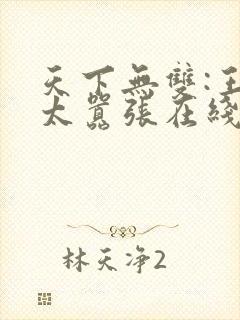 天下無雙:王
太囂張在綫
林天净2